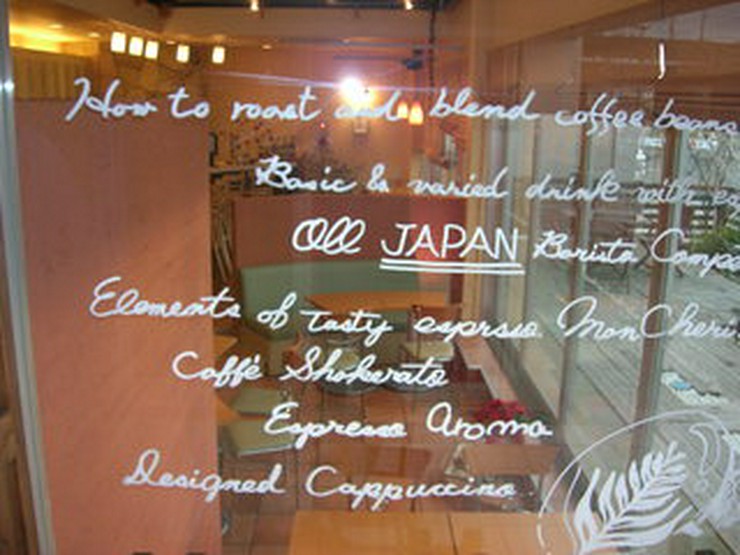 How to roast and blend coffee beans
Basic & varied drink with
All JAPAN Barista
Elements of tasty esprsso. Mon Cheri
Caffè Shokerato
Espresso Aroma
Designed Cappuccino